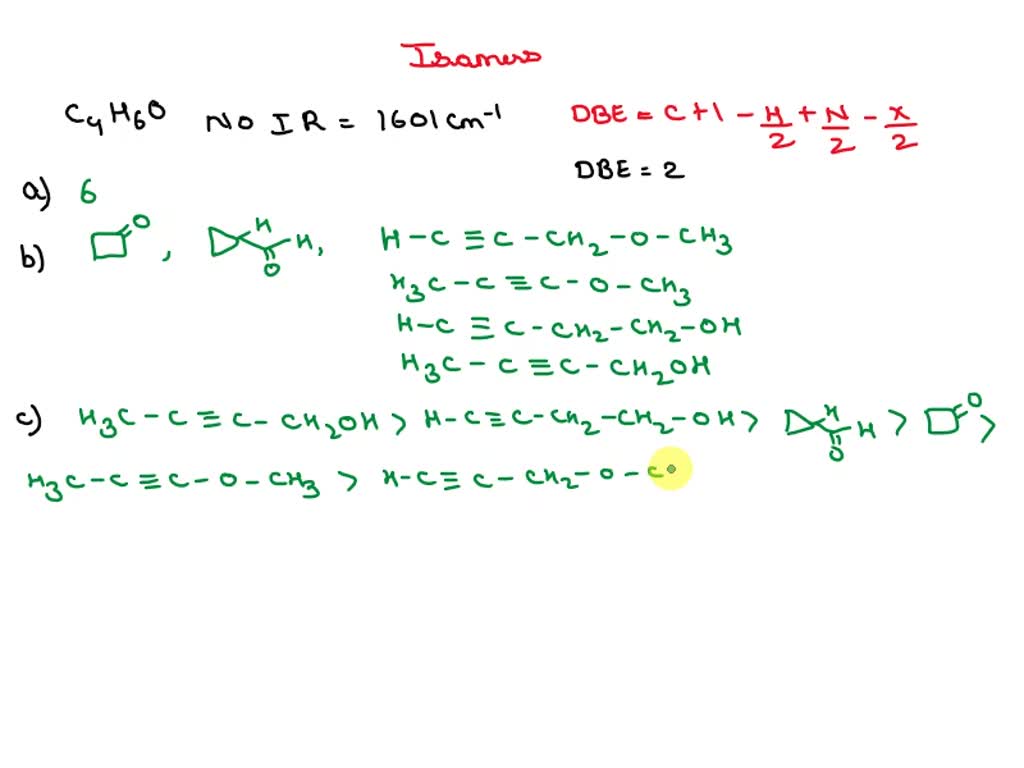 Isomers
C4H6O NO IR = 1601 cm-1 DBE = C+1 - H/2 + N/2 - X/2
DBE = 2
a) 6
b) O , H H, O H-C≡C-CH2-O-CH3
H3C-C≡C-O-CH3
H-C≡C-CH2-CH2-OH
H3C-C≡C-CH2OH
c) H3C-C≡C-CH2OH > H-C≡C-CH2-CH2-OH > H H O > O >
H3C-C≡C-O-CH3 > H-C≡C-CH2-O-C